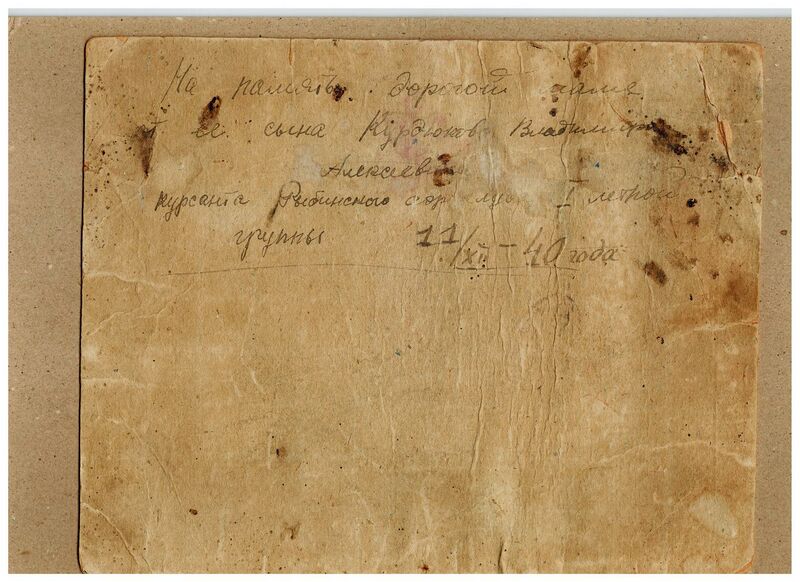 На память дорогой маме
от ее сына Курдюкова Владимира
Алексеевича
курсанта Рыбинского аэроклуба I летной
группы 11/XI – 40 года